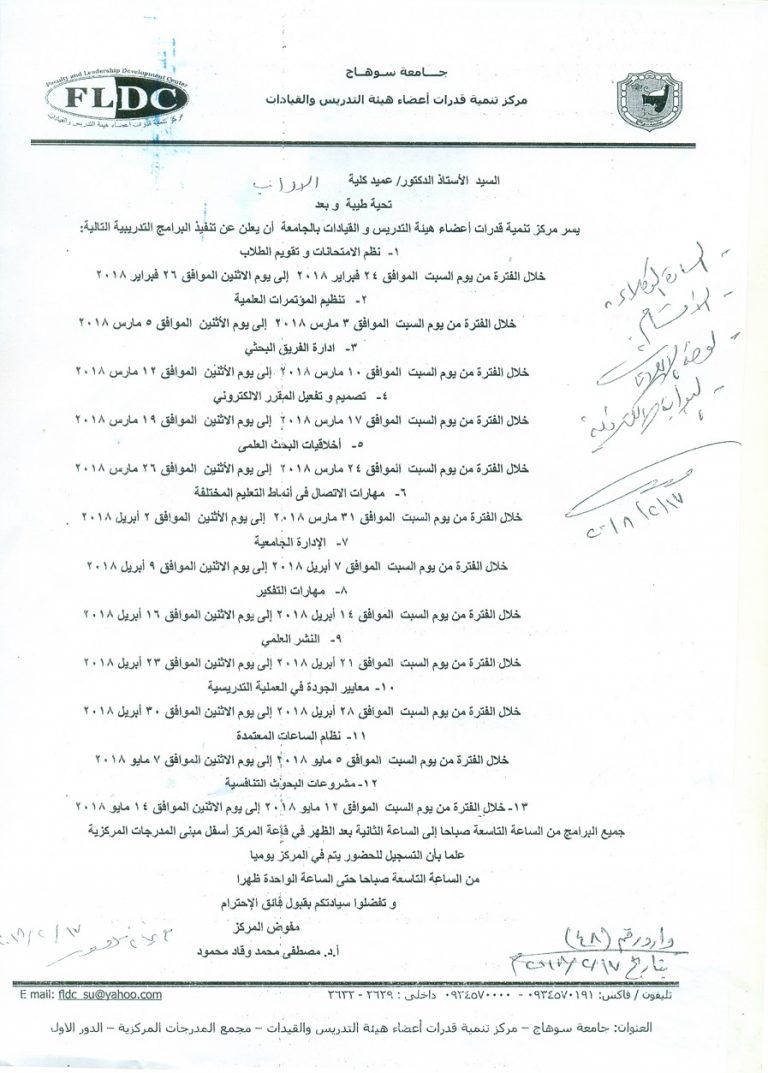 جـــامعة سـوهـاج
مركز تنمية قدرات أعضاء هيئة التدريس والقيادات
Faculty and Leadership Development Center
FLDC
مركز تنمية قدرات أعضاء هيئة التدريس والقيادات
السيد الأستاذ الدكتور/ عميد كلية الآداب
تحية طيبة و بعد
يسر مركز تنمية قدرات أعضاء هيئة التدريس و القيادات بالجامعة أن يعلن عن تنفيذ البرامج التدريبية التالية:
١- نظم الامتحانات و تقويم الطلاب
خلال الفترة من يوم السبت الموافق ٢٤ فبراير ٢٠١٨ إلى يوم الاثنين الموافق ٢٦ فبراير ٢٠١٨
٢- تنظيم المؤتمرات العلمية
خلال الفترة من يوم السبت الموافق ٣ مارس ٢٠١٨ إلى يوم الأثنين الموافق ٥ مارس ٢٠١٨
٣- ادارة الفريق البحثي
خلال الفترة من يوم السبت الموافق ١٠ مارس ٢٠١٨ إلى يوم الأثنين الموافق ١٢ مارس ٢٠١٨
٤- تصميم و تفعيل المقرر الالكتروني
خلال الفترة من يوم السبت الموافق ١٧ مارس ٢٠١٨ إلى يوم الأثنين الموافق ١٩ مارس ٢٠١٨
٥- أخلاقيات البحث العلمى
خلال الفترة من يوم السبت الموافق ٢٤ مارس ٢٠١٨ إلى يوم الأثنين الموافق ٢٦ مارس ٢٠١٨
٦- مهارات الاتصال فى أنماط التعليم المختلفة
خلال الفترة من يوم السبت الموافق ٣١ مارس ٢٠١٨ إلى يوم الأثنين الموافق ٢ أبريل ٢٠١٨
٧- الإدارة الجامعية
خلال الفترة من يوم السبت الموافق ٧ أبريل ٢٠١٨ إلى يوم الاثنين الموافق ٩ أبريل ٢٠١٨
٨- مهارات التفكير
خلال الفترة من يوم السبت الموافق ١٤ أبريل ٢٠١٨ إلى يوم الاثنين الموافق ١٦ أبريل ٢٠١٨
٩- النشر العلمي
خلال الفترة من يوم السبت الموافق ٢١ أبريل ٢٠١٨ إلى يوم الاثنين الموافق ٢٣ أبريل ٢٠١٨
١٠- معايير الجودة في العملية التدريسية
خلال الفترة من يوم السبت الموافق ٢٨ أبريل ٢٠١٨ إلى يوم الاثنين الموافق ٣٠ أبريل ٢٠١٨
١١- نظام الساعات المعتمدة
خلال الفترة من يوم السبت الموافق ٥ مايو ٢٠١٨ إلى يوم الاثنين الموافق ٧ مايو ٢٠١٨
١٢- مشروعات البحوث التنافسية
١٣- خلال الفترة من يوم السبت الموافق ١٢ مايو ٢٠١٨ إلى يوم الاثنين الموافق ١٤ مايو ٢٠١٨
جميع البرامج من الساعة التاسعة صباحا إلى الساعة الثانية بعد الظهر في قاعة المركز أسفل مبنى المدرجات المركزية
علما بأن التسجيل للحضور يتم في المركز يوميا
من الساعة التاسعة صباحا حتى الساعة الواحدة ظهرا
و تفضلوا سيادتكم بقبول فائق الإحترام
مفوض المركز
أ.د. مصطفى محمد وقاد محمود
- السادة الوكلاء
- الأقسام
- لوحة الإعلانات
- البوابة الإلكترونية
٢٠١٨/٢/١٧
وارد رقم (٤٨)
بتاريخ ٢٠١٨/٢/١٧م
٢٠١٨/٢/١٧
تليفون / فاكس: ٠٩٣٤٥٧٠١٩١ - ٠٩٣٤٥٧٠٠٠٠ داخلى : ٢٦٣٩ - ٣٦٣٢
E mail: fldc_su@yahoo.com
العنوان: جامعة سوهاج – مركز تنمية قدرات أعضاء هيئة التدريس والقيدات – مجمع المدرجات المركزية – الدور الاول